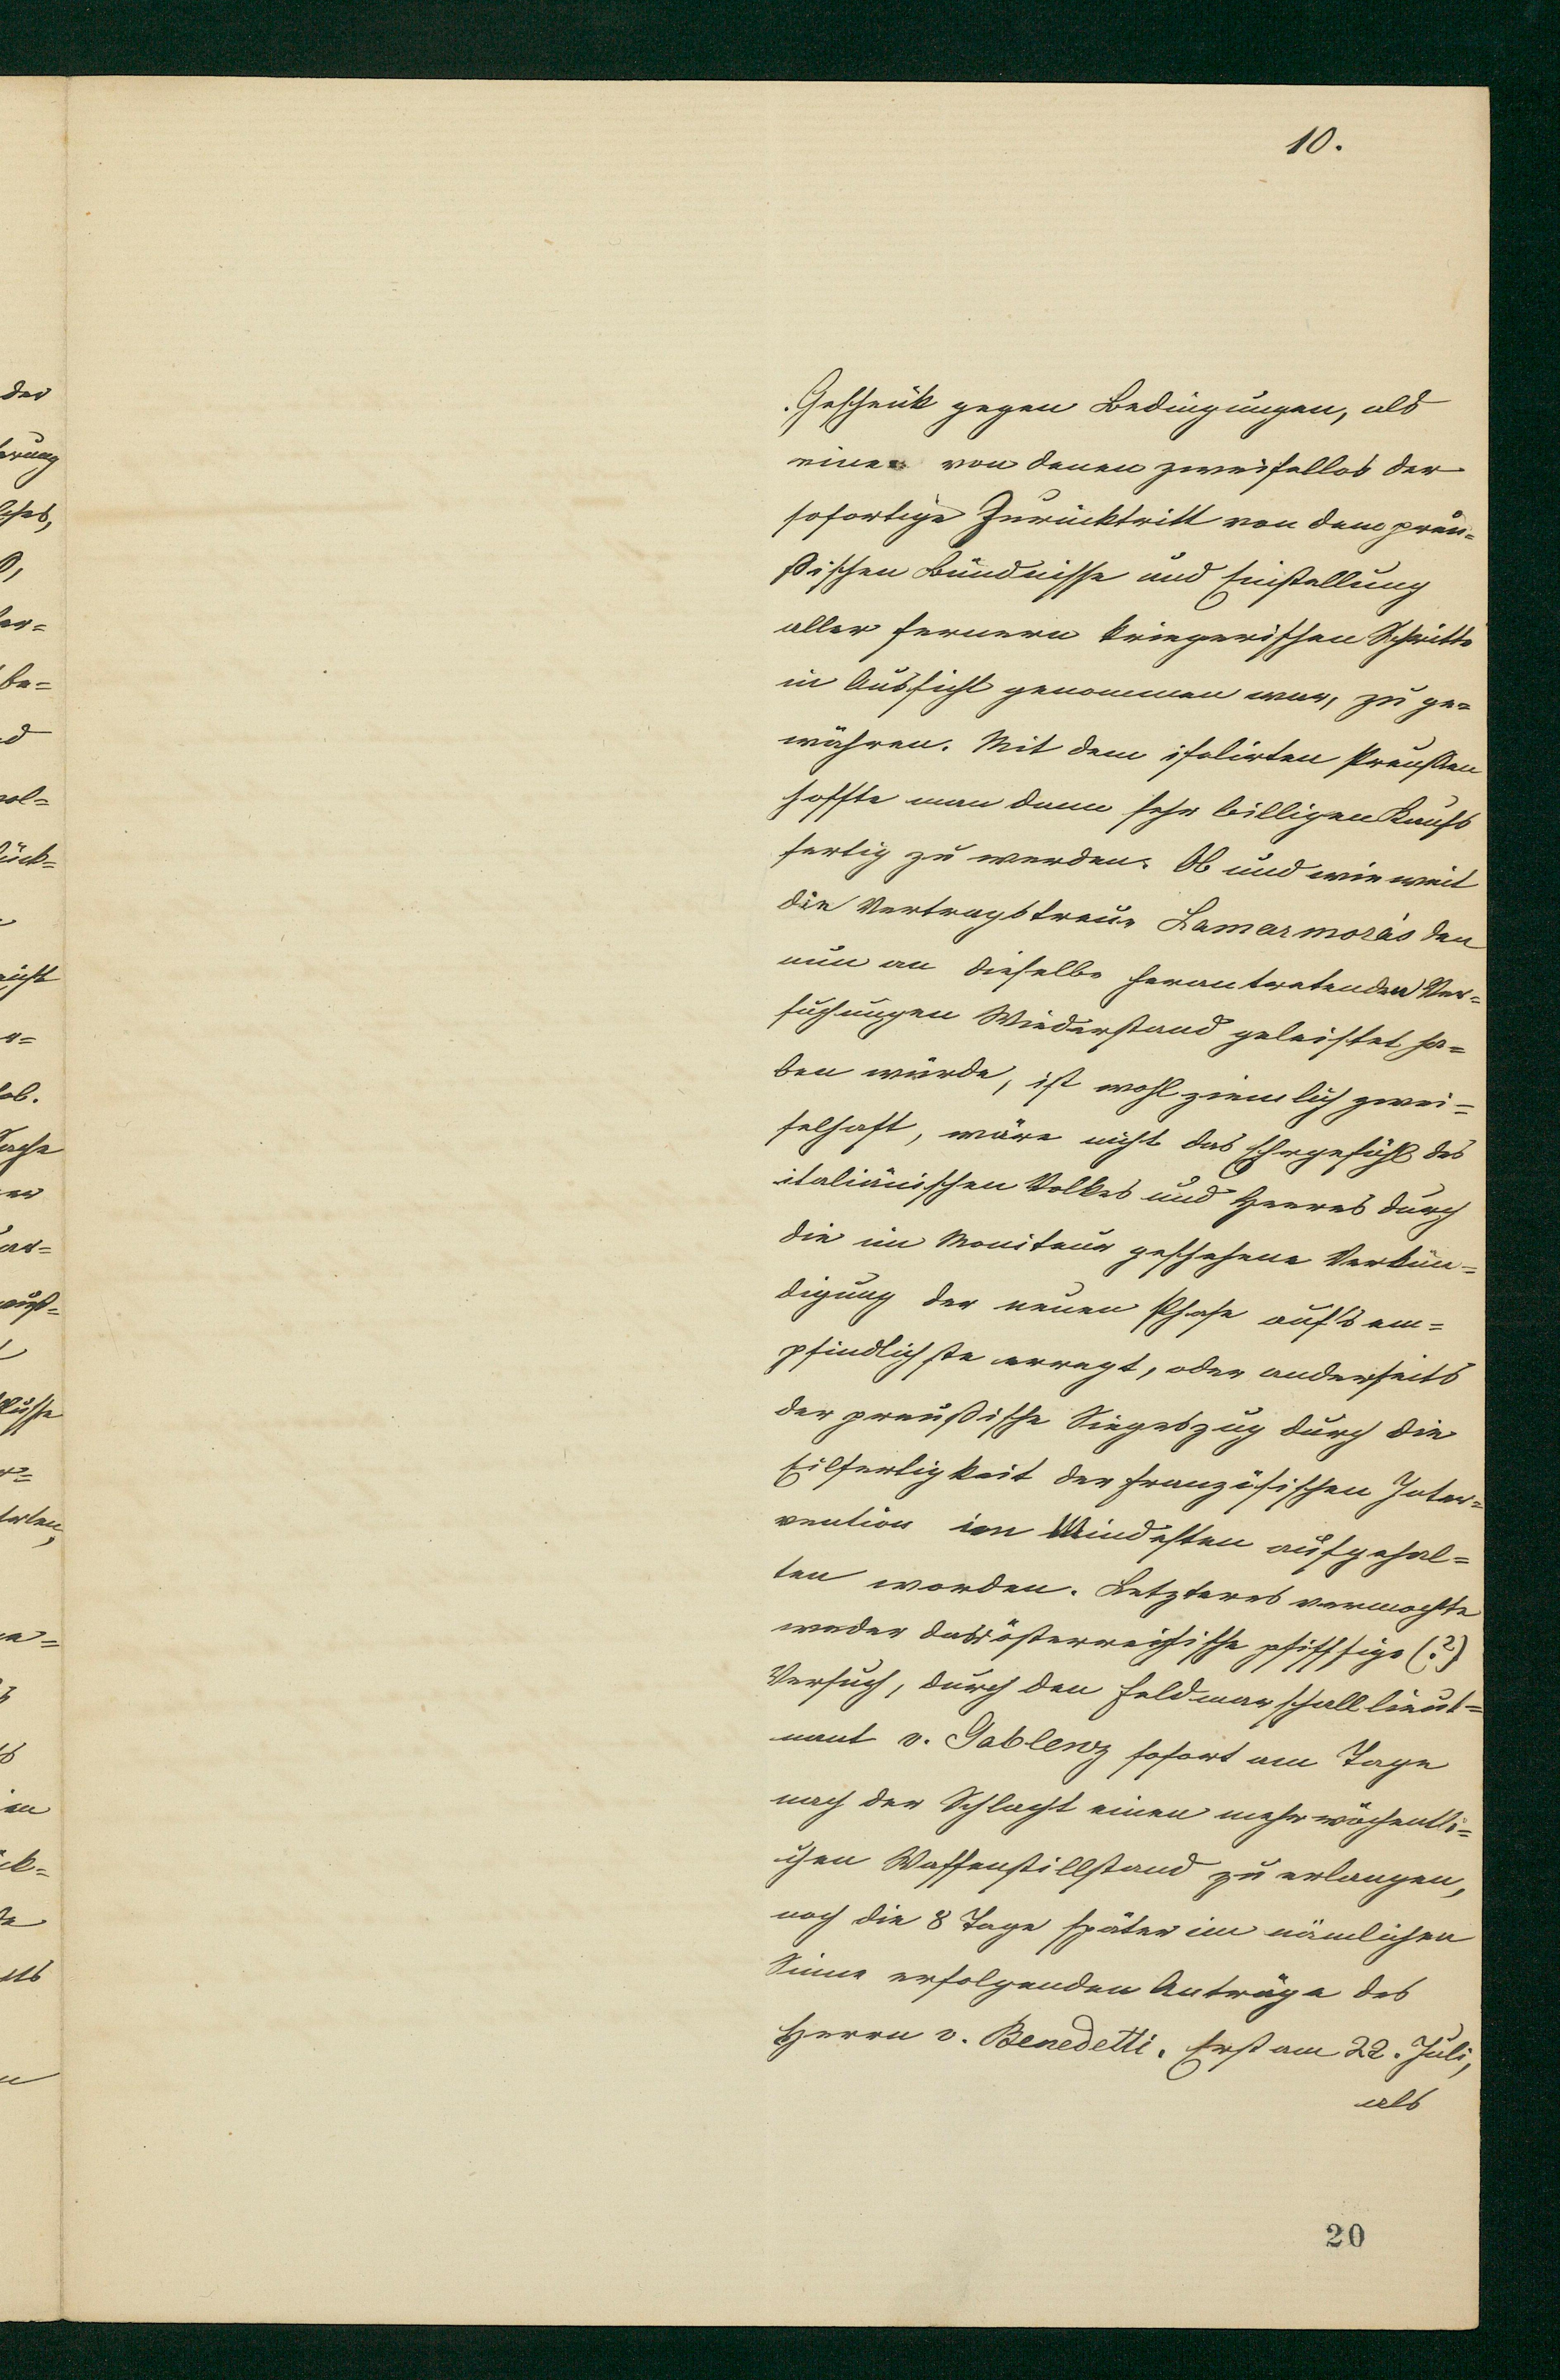 10.
Geschenk gegen Bedingungen, als
eine von denen zweifellos der
sofortige Zurücktritt von dem preu=
ßischen Bündnisse und Einstellung
aller fernern kriegerischen Schritte
in Aussicht genommen war, zu ge=
währen. Mit dem isolirten Preußen
hoffte man dann sehr billigen Kaufs
fertig zu werden. Ob und wie weit
die Vertragstreue Lamarmora's den
nun an dieselbe herantretenden Ver=
suchungen Wiederstand geleistet ha=
ben würde, ist wohl ziemlich zwei=
felhaft, wäre nicht das Ehrgefühl des
italiänischen Volkes und Heeres durch
die im Moniteur geschehene Verkün=
digung der neuen Phase auf's em=
pfindlichste erregt, oder anderseits
der preußische Siegeszug durch die
Eilfertigkeit der französischen Inter=
vention im Mindesten aufgehal=
ten worden. Letzteres vermochte
weder das österreichische pfiffige (?)
Versuch, durch den Feldmarschalllieut=
nant v. Gablenz sofort am Tage
nach der Schlacht einen mehrwöchentli=
chen Waffenstillstand zu erlangen,
noch die 8 Tage später im nämlichen
Sinne erfolgenden Anträge des
Herrn v. Benedetti. Erst am 22. Juli,
als
20